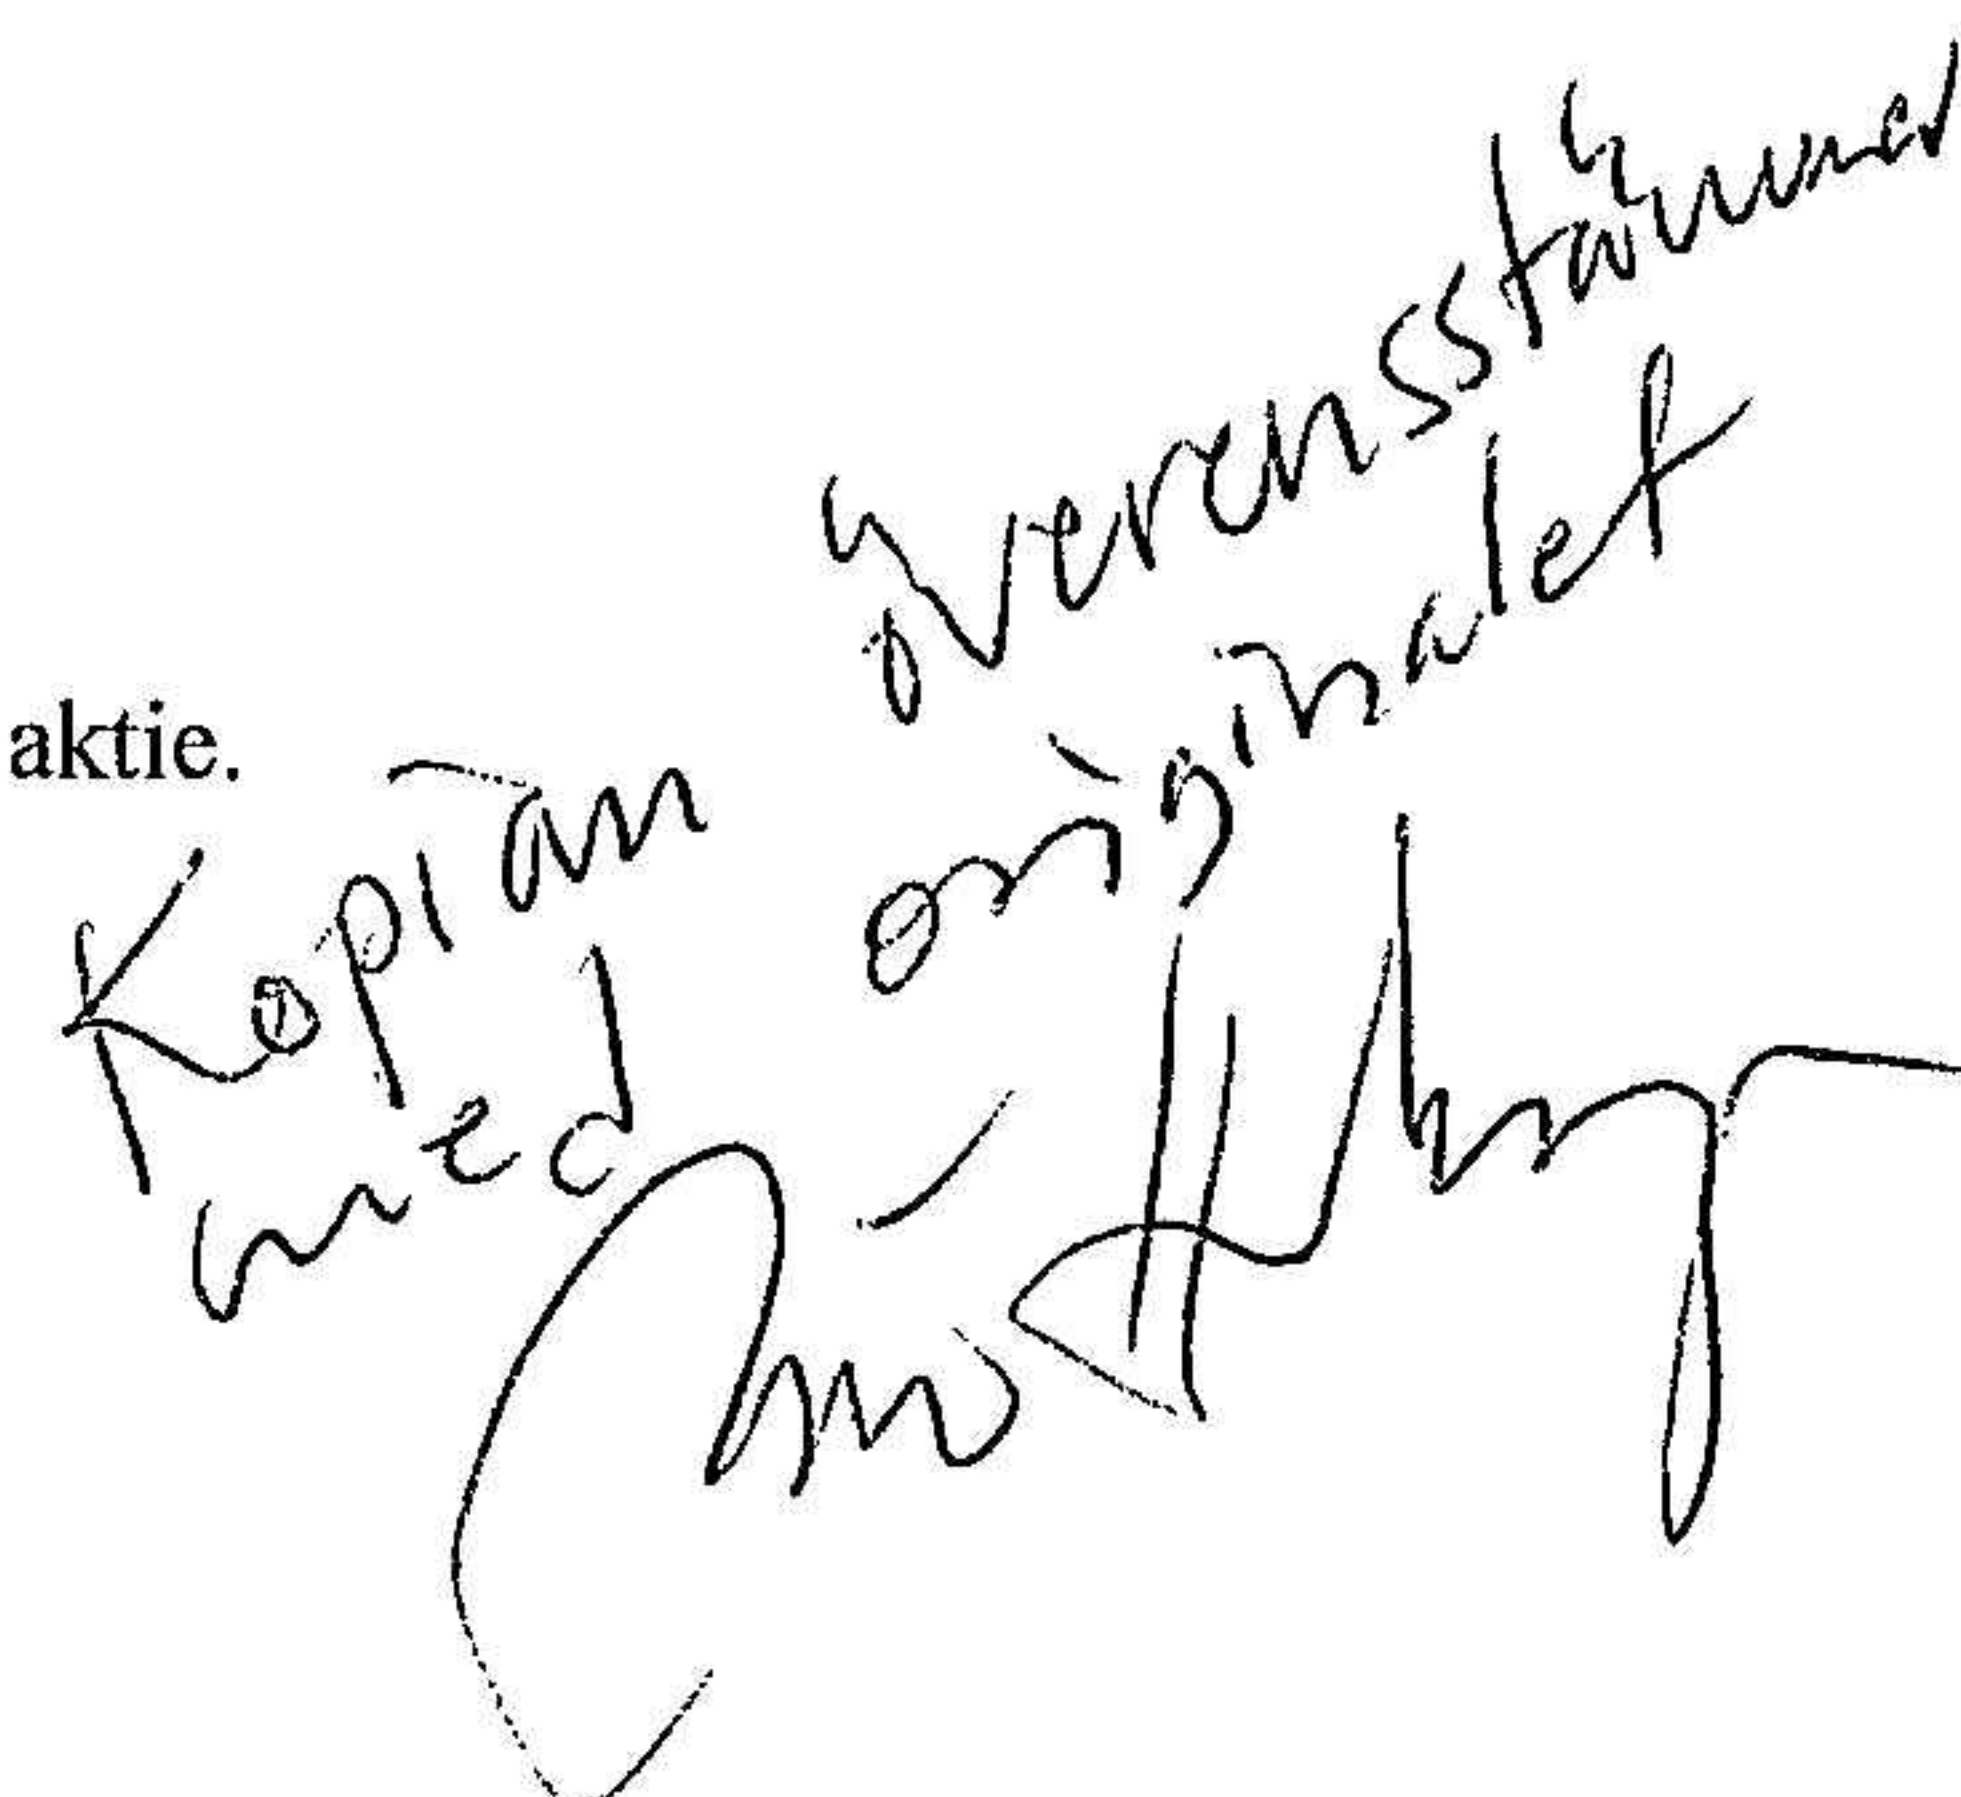 aktie.
Kopian överensstämmer
med originalet